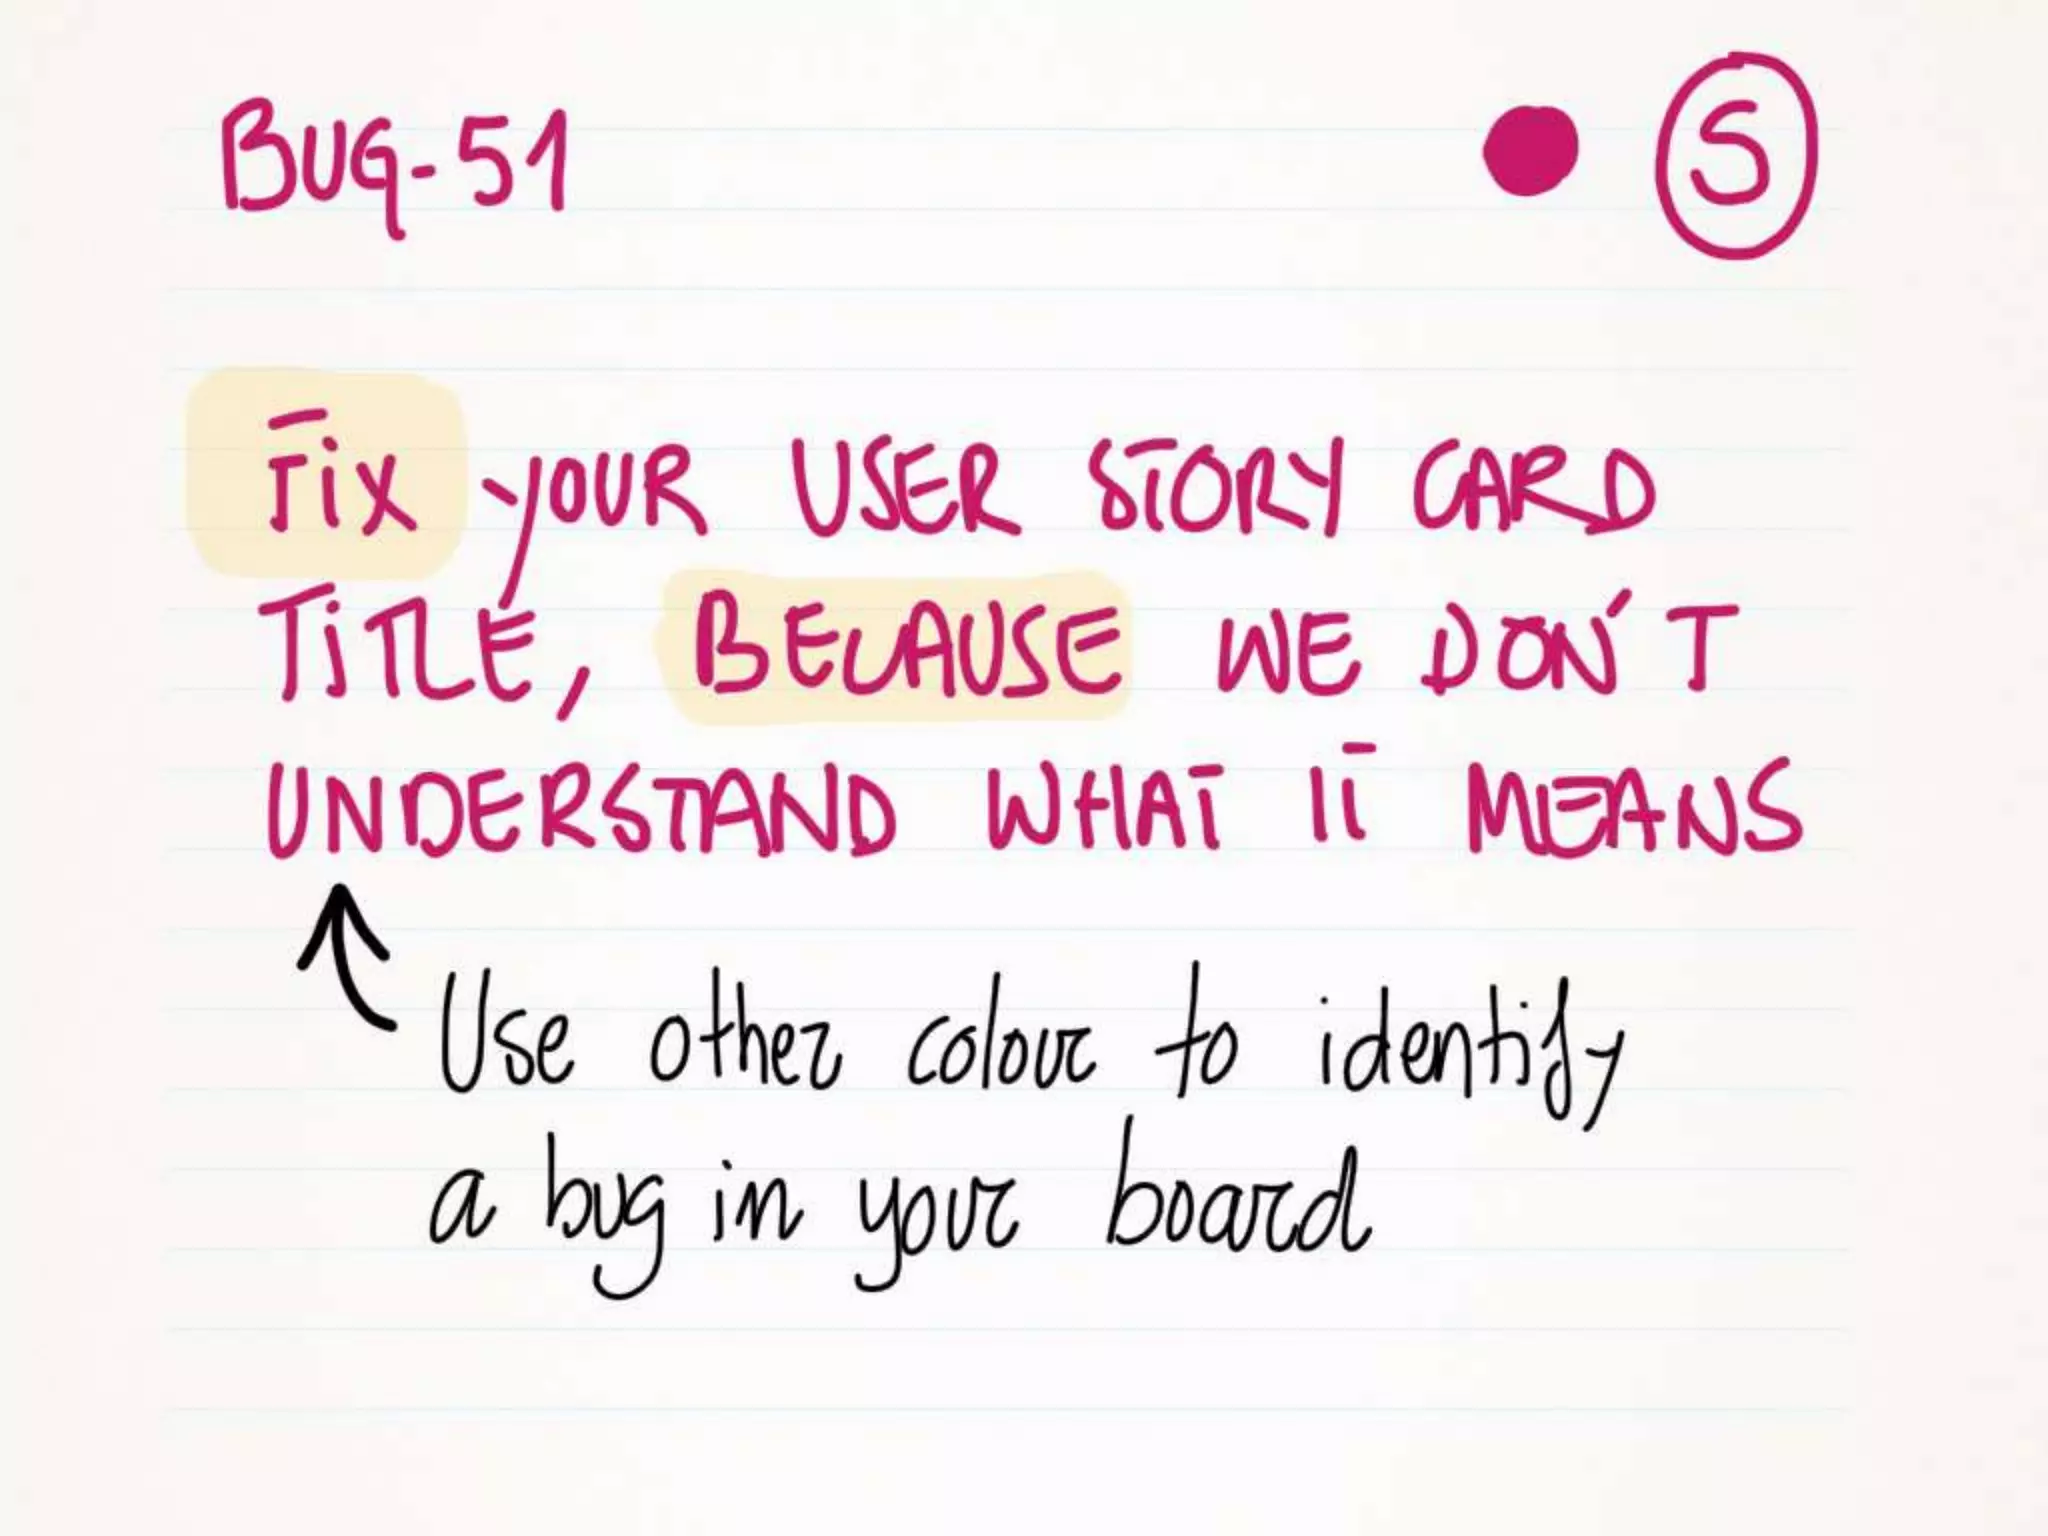 BUG-51 S
FiX YOUR USER STORY CARD
TiTLE, BECAUSE WE DON'T
UNDERSTAND WHAT IT MEANS
Use other colour to identify
a bug in your board